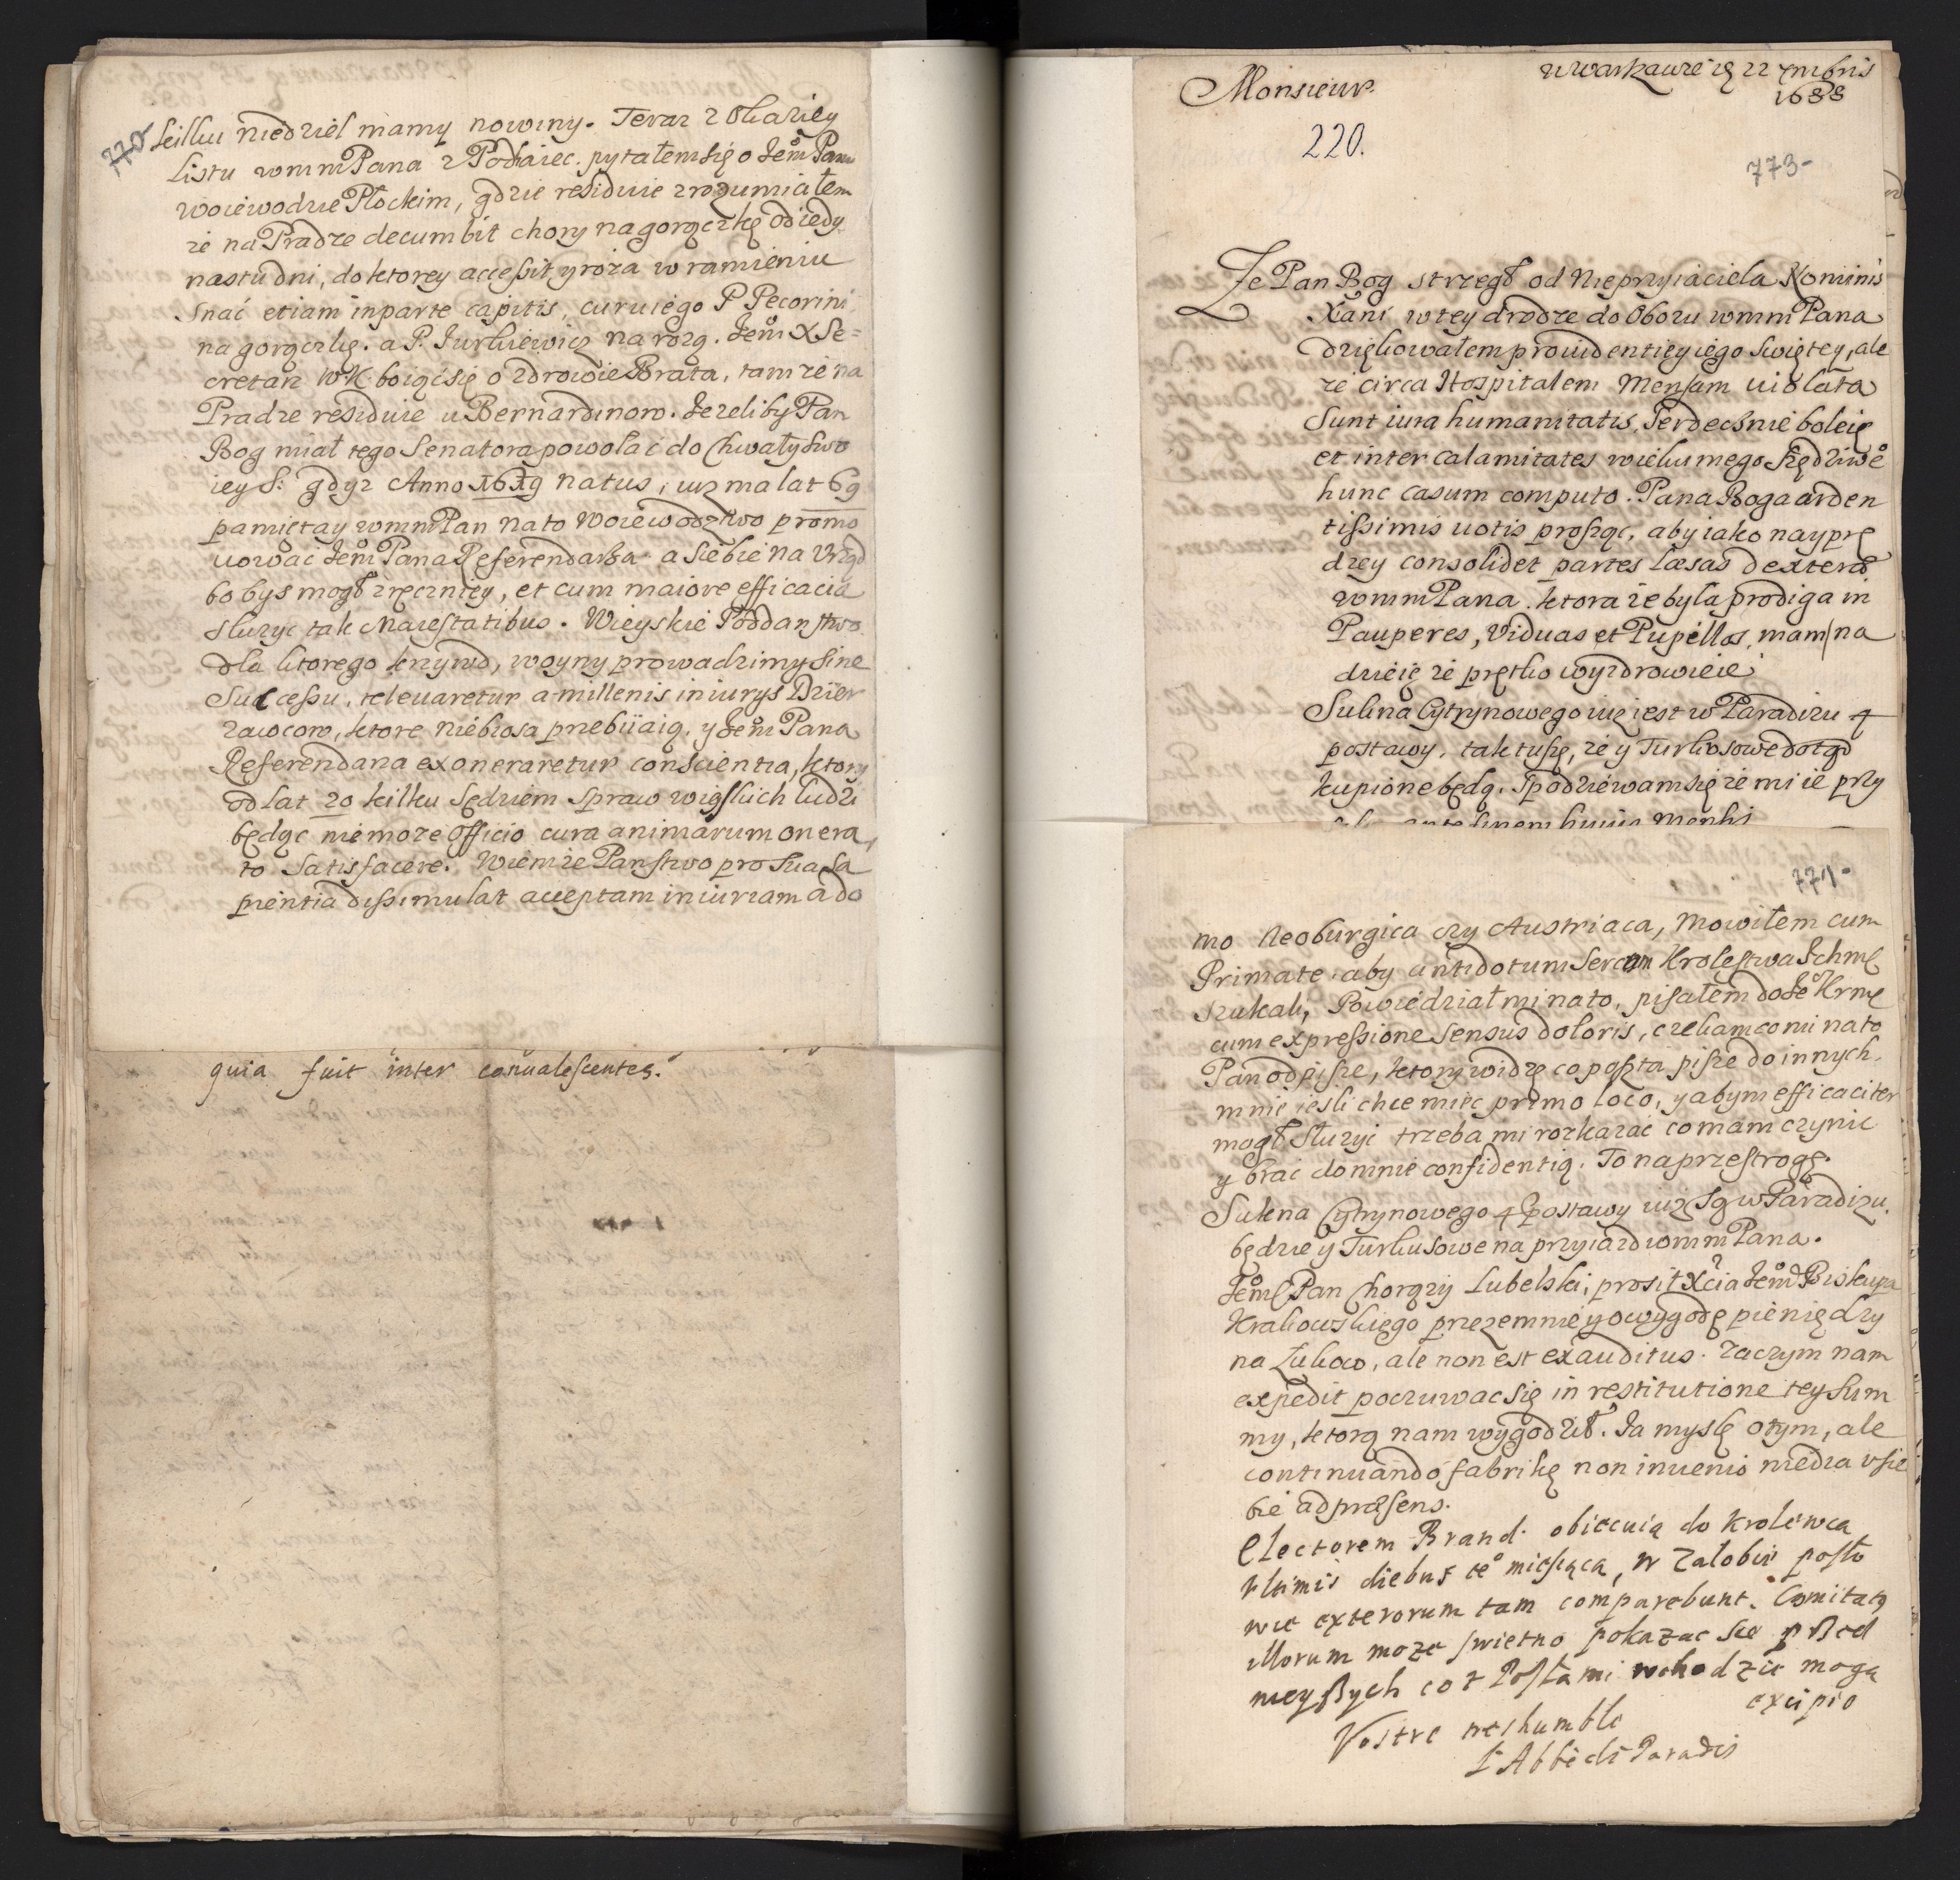 770
kilku niedziel mamy nowiny. Teraz z Okaziey
Listu wmmPana z Podhaiec. pytałemsię o JemPanu
woiewodzie Płockim, gdzie residuie zrozumiałem
że na Pradze decumbit chory na gorączkę od iedy
nastu dni, do ktorey accessit y roża w ramieniu
snać etiam in parte capitis, curuie go P Pecorini
na gorączkę. a P. Jurkiewicz na rożą. Jem X Se=
cretarz WK. boiąć się o zdrowie Brata, tamże na
Pradze residuie u Bernardinow. Jezeliby Pan
Bog miał tego Senatora powołać do Chwały Swo
iey S: gdyz Anno 1619 natus, iuz ma lat 69
pamiętay wmmPan na to Woiewodztwo promo
uowac Jem Pana Referendarza a siebie na Urząd
bo bys mogł zręczniey, et cum maiore efficacia
sluzyc tak Maiestatibus. Wieyskie Poddanstwo
dla ktorego krzywd, woyny prowadzimy sine
Successu, releuaretur a millenis iniurys Dzier
zawcow, ktore niebiosa przebiiaią. y Jem Pana
Referendarza exoneraretur conscientia, ktory
od lat 20 kilku Sędziem Spraw wieskich ludzi
będąc nie moze officio cura animarum onera
to Satisfacere. Wiem ze Panstwo pro sua Sa
pientia dissimulat acceptam iniuriam a do
quia fuit inter conualescentes.
Monsieur.
w Warszawie ią 22 7mbris
1688
220.
773-
Ze Pan Bog strzegł od Nieprzyiaciela Nominis
Xani w tey drodze do Obozu wmmPana
dziękowałem prouidentiey iego Swiętey, ale
ze circa Hospitalem Mensam uiolata
Sunt iura humanitatis, Serdecznie boleię
et inter calamitates wieku mego Sędziwe
hunc casum computo. Pana Boga arden
tissimis uotis prosząc, aby iako nayprę
dzey consolidet partes laesas dexterae
wmmPana. ktora ze była prodiga in
Pauperes, Viduas et Pupillos, mam na
dzieię ze prętko wyzdrowieie
Sukna Cytrynowego iuz iest w Paradizu 4
postawy. tak tuszę, ze y Turkusowe dotąd
kupione będą. Spodziewam się ze mi ie przy
ante finem huius Mensis
774-
mo Neoburgica czy Austriaca, Mowiłem cum
Primate. aby antidotum Krolestwa Ichme
szukali, Powiedział mi na to, pisałem do Je Krme
cum expressione sensus doloris, czekam co mi na to
Pan odpisze, ktory widzę co poszta pisze do innych.
mnie iesli chce miec primo loco, y abym efficaciter
mogł służyć trzeba mi rozkazać co mam czynic
y brac do mnie confidentią. To na przestrogę.
Sukna Cytrynowego 4 postawy iuz są w Paradizu.
będzie y Turkusowe na przyiazd wmmPana.
Jem Pan Chorązy Lubelski, prosił Xcia Jem Biskupa
Krakowskiego przezemnie y o wygodę pieniędzy
na Łukow, ale non est exauditus. zaczym nam
expedit poczuwac się in restitutione tey Sum
my, ktorą nam wygodził. Ja myslę o tym, ale
continuando fabrikę non inuenio media v sie
bie ad praesens.
Electorem Brand. obiecuią do Krolewca
vltimis diebus te miesiąca, w Załobie posło
wie exterorum tam comparebunt. Comitaty
illorum moze swietno pokazac sie przed
nieyszych co z Posłami wchodzic mogą
excipio
Vostre treshumble
L'Abbé de Paradis